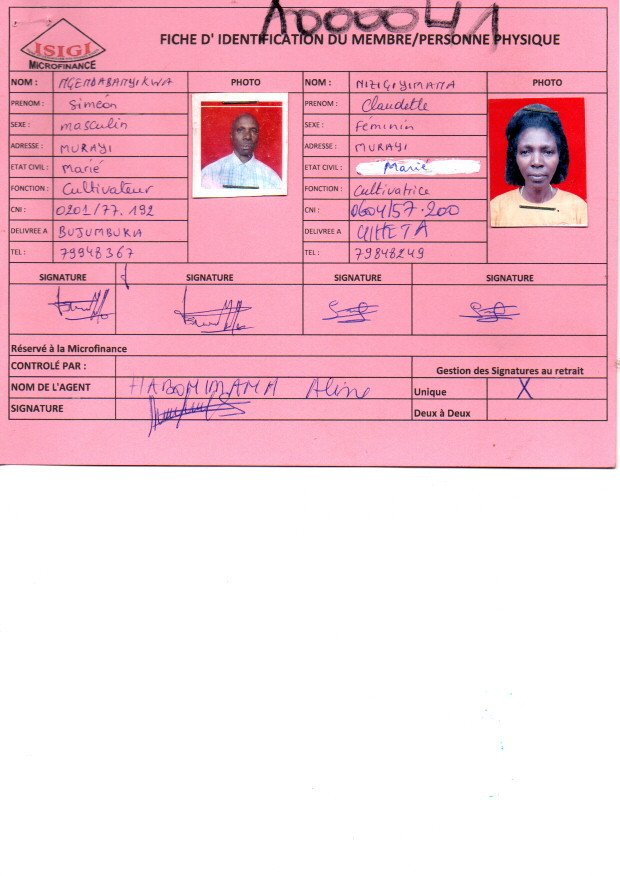 A000041
ISIGI
MICROFINANCE
FICHE D' IDENTIFICATION DU MEMBRE/PERSONNE PHYSIQUE
NOM : NGENDABANYIKWA PHOTO NOM : NIZIGIYIMANA PHOTO
PRENOM : Siméon PRENOM : Claudette
SEXE : masculin SEXE : Feminin
ADRESSE : MURAYI ADRESSE : MURAYI
ETAT CIVIL : Marié ETAT CIVIL : Marié
FONCTION : Cultivateur FONCTION : Cultivatrice
CNI : 0201/77.192 CNI : 0604/57.200
DELIVREE A BUJUMBURA DELIVREE A GIHETA
TEL : 79948367 TEL : 79848249
SIGNATURE SIGNATURE SIGNATURE SIGNATURE
Réservé à la Microfinance
CONTROLÉ PAR : Gestion des Signatures au retrait
NOM DE L'AGENT HABONIMANA Aline Unique X
SIGNATURE Deux à Deux